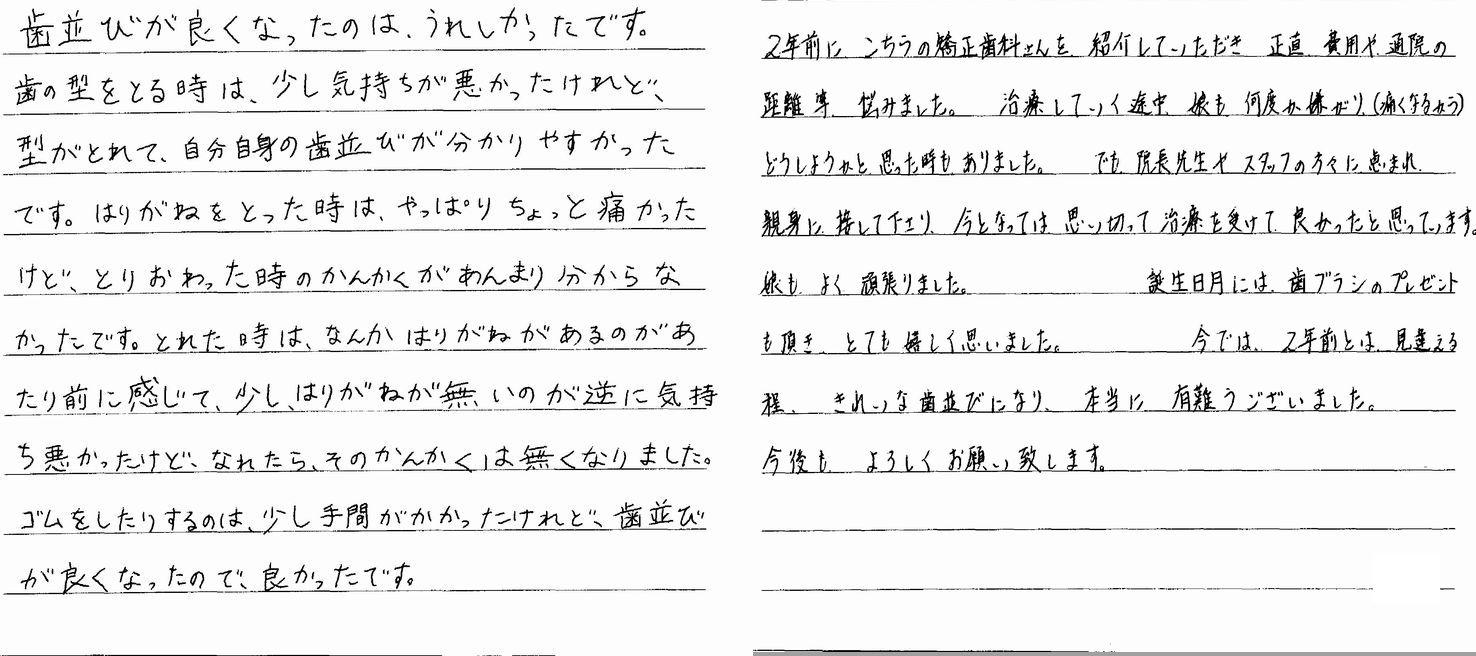 歯並びが良くなったのは、うれしかったです。
歯の型をとる時は、少し気持ちが悪かったけれど、
型がとれて、自分自身の歯並びが分かりやすかった
です。はりがねをとった時は、やっぱりちょっと痛かった
けど、とりおわった時のかんかくがあんまり分からな
かったです。とれた時は、なんかはりがねがあるのがあ
たり前に感じて、少し、はりがねが無いのが逆に気持
ち悪かったけど、なれたら、そのかんかくは無くなりました。
ゴムをしたりするのは、少し手間がかかったけれど、歯並び
が良くなったので、良かったです。
2年前に こちらの矯正歯科さんを 紹介していただき 正直 費用や 通院の
距離 等 悩みました。 治療していく途中 娘も 何度か嫌がり、(痛くなるから)
どうしようかと 思った時も ありました。 でも 院長先生や スタッフの方々に 恵まれ
親身に 接して下さり 今となっては 思い切って 治療を受けて 良かったと思っています。
娘も よく 頑張りました。 誕生日月には 歯ブラシのプレゼント
も頂き とても 嬉しく思いました。 今では、2年前とは 見違える
程、 きれいな歯並びになり、 本当に 有難うございました。
今後も よろしく お願い致します。